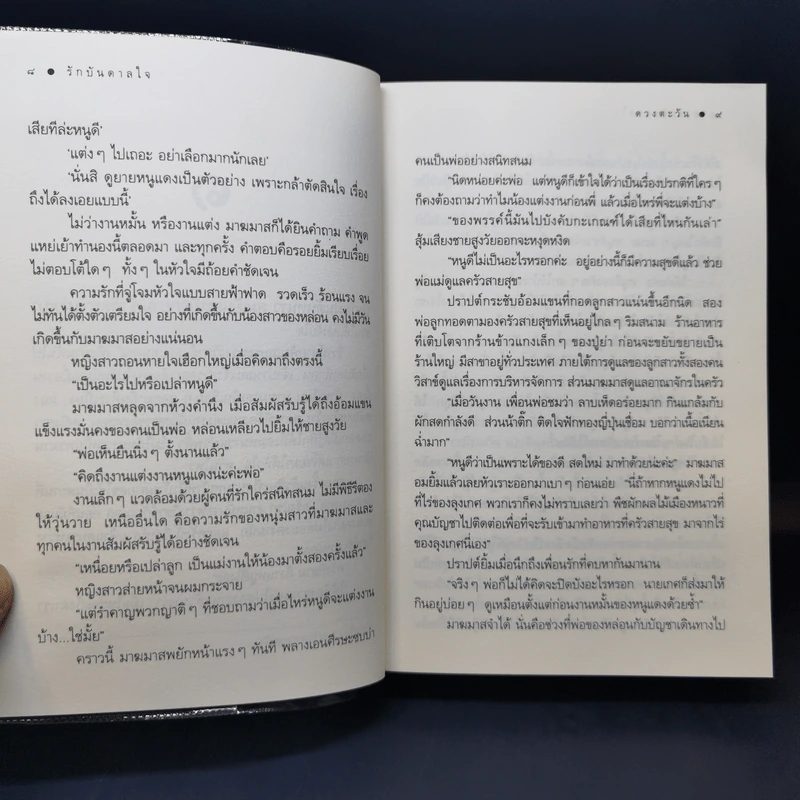 ๘ ● รักบันดาลใจ
เสียทีล่ะหนูดี'
'แต่งๆ ไปเถอะ อย่าเลือกมากนักเลย'
'นั่นสิ ดูยายหนูแดงเป็นตัวอย่าง เพราะกล้าตัดสินใจ เรื่อง
ถึงได้ลงเอยแบบนี้'
ไม่ว่างานหมั้น หรืองานแต่ง มาฆมาสก็ได้ยินคำถาม คำพูด
แหย่เย้าทำนองนี้ตลอดมา และทุกครั้ง คำตอบคือรอยยิ้มเรียบเรื่อย
ไม่ตอบโต้ใดๆ ทั้งๆ ในหัวใจมีถ้อยคำชัดเจน
ความรักที่จู่โจมหัวใจแบบสายฟ้าฟาด รวดเร็ว ร้อนแรง จน
ไม่ทันได้ตั้งตัวเตรียมใจ อย่างที่เกิดขึ้นกับน้องสาวของหล่อน คงไม่มีวัน
เกิดขึ้นกับมาฆมาสอย่างแน่นอน
หญิงสาวถอนหายใจเฮือกใหญ่เมื่อคิดมาถึงตรงนี้
"เป็นอะไรไปหรือเปล่าหนูดี"
มาฆมาสหลุดจากห้วงคำนึง เมื่อสัมผัสรับรู้ได้ถึงอ้อมแขน
แข็งแรงมั่นคงของคนเป็นพ่อ หล่อนเหลียวไปยิ้มให้ชายสูงวัย
"พ่อเห็นยืนนิ่งๆ ตั้งนานแล้ว"
"คิดถึงงานแต่งงานหนูแดงน่ะค่ะพ่อ"
งานเล็กๆ แวดล้อมด้วยผู้คนที่รักใคร่สนิทสนม ไม่มีพิธีรีตอง
ให้วุ่นวาย เหนืออื่นใด คือความรักของหนุ่มสาวที่มาฆมาสและ
ทุกคนในงานสัมผัสรับรู้ได้อย่างชัดเจน
"เหนื่อยหรือเปล่าลูก เป็นแม่งานให้น้องมาตั้งสองครั้งแล้ว"
หญิงสาวส่ายหน้าจนผมกระจาย
"แต่รำคาญพวกญาติๆ ที่ชอบถามว่าเมื่อไหร่หนูดีจะแต่งงาน
บ้าง...ใช่มั้ย"
คราวนี้ มาฆมาสพยักหน้าแรงๆ ทันที พลางเอนศีรษะซบบ่า
ดวงตะวัน ● ๙
คนเป็นพ่ออย่างสนิทสนม
"นิดหน่อยค่ะพ่อ แต่หนูดีก็เข้าใจได้ว่าเป็นเรื่องปรกติที่ใครๆ
ก็คงต้องถามว่าทำไมน้องแต่งงานก่อนพี่ แล้วเมื่อไหร่พี่จะแต่งบ้าง"
"ของพรรค์นี้มันไปบังคับกะเกณฑ์ได้เสียที่ไหนกันเล่า"
สุ้มเสียงชายสูงวัยออกจะหงุดหงิด
"หนูดีไม่เป็นอะไรหรอกค่ะ อยู่อย่างนี้ก็มีความสุขดีแล้ว ช่วย
พ่อแม่ดูแลครัวสายสุข"
ปราปต์กระชับอ้อมแขนที่กอดลูกสาวแน่นขึ้นอีกนิด สอง
พ่อลูกทอดตามองครัวสายสุขที่เห็นอยู่ไกลๆ ริมสนาม ร้านอาหาร
ที่เติบโตจากร้านข้าวแกงเล็กๆ ของปู่ย่า ก่อนจะขยับขยายเป็น
ร้านใหญ่ มีสาขาอยู่ทั่วประเทศ ภายใต้การดูแลของลูกสาวทั้งสองคน
วิสาข์ดูแลเรื่องการบริหารจัดการ ส่วนมาฆมาสดูแลอาณาจักรในครัว
"เมื่อวันงาน เพื่อนพ่อชมว่า ลาบเห็ดอร่อยมาก กินแกล้มกับ
ผักสดกำลังดี ส่วนน้าติ๊ก ติดใจฟักทองญี่ปุ่นเชื่อม บอกว่าเนื้อเนียน
ฉ่ำมาก"
"หนูดีว่าเป็นเพราะได้ของดี สดใหม่ มาทำด้วยน่ะค่ะ" มาฆมาส
อมยิ้มแล้วเลยหัวเราะออกมาเบาๆ ก่อนเอ่ย "นี่ถ้าหากหนูแดงไม่ไป
ที่ไร่ของลุงเกศ พวกเราก็คงไม่ทราบเลยว่า พืชผักผลไม้เมืองหนาวที่
คุณบัญชาไปติดต่อเพื่อที่จะรับเข้ามาทำอาหารที่ครัวสายสุข มาจากไร่
ของลุงเกศนี่เอง"
ปราปต์ยิ้มเมื่อนึกถึงเพื่อนรักที่คบหากันมานาน
"จริงๆ พ่อก็ไม่ได้คิดจะปิดบังอะไรหรอก นายเกศก็ส่งมาให้
กินอยู่บ่อยๆ ดูเหมือนตั้งแต่ก่อนงานหมั้นของหนูแดงด้วยซ้ำ"
มาฆมาสจำได้ นั่นคือช่วงที่พ่อของหล่อนกับบัญชาเดินทางไป